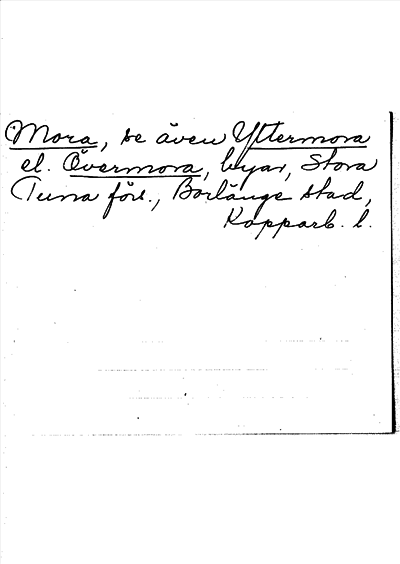 Mora, se även Yttermora
el. Övermora, byar, Stora
Tunaförs., Borlänge stad,
Kopparb. l.